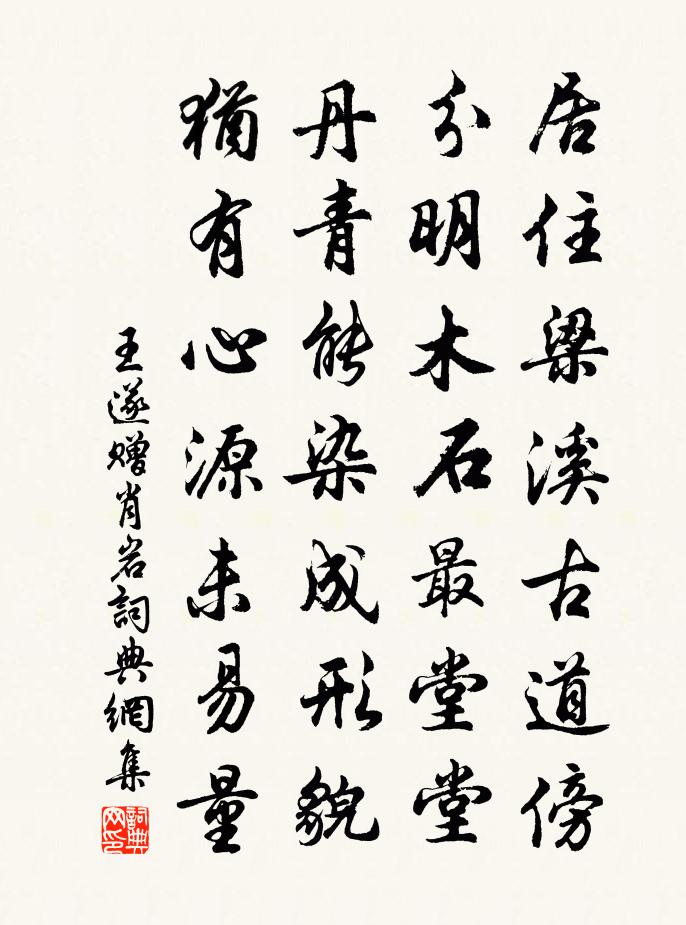 居住梁溪古道傍
分明木石最堂堂
丹青能染成形貌
猶有心源未易量
王遂赠肖岩詞典網集
詞典
网印